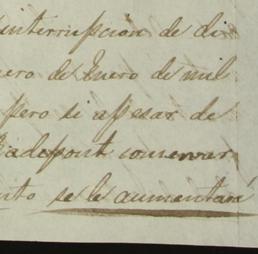 interrupción de di
nero de Enero de mil
pero si apesar de
conservar
nto se le aumentará